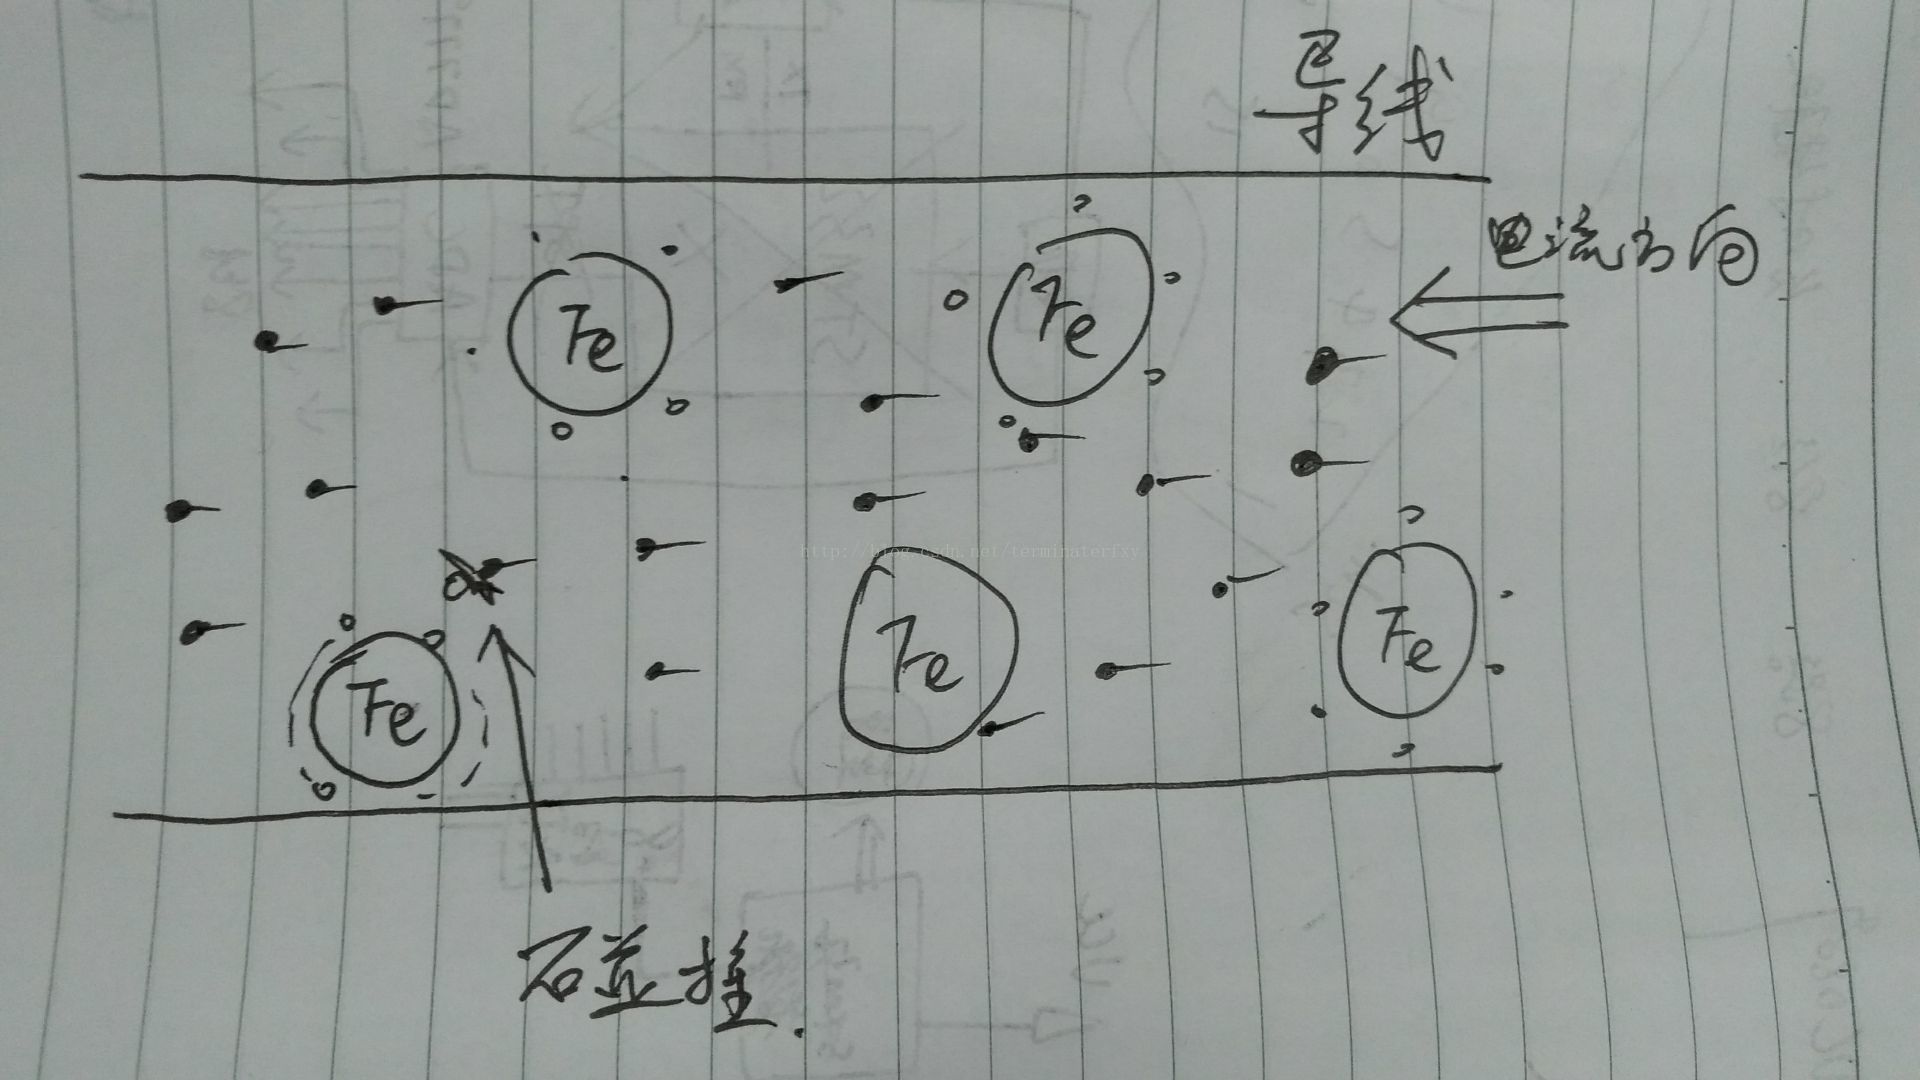 导线
电流方向
Fe
Fe
http://blog.csdn.net/terminaterfxy
Fe
Fe
Fe
碰撞.